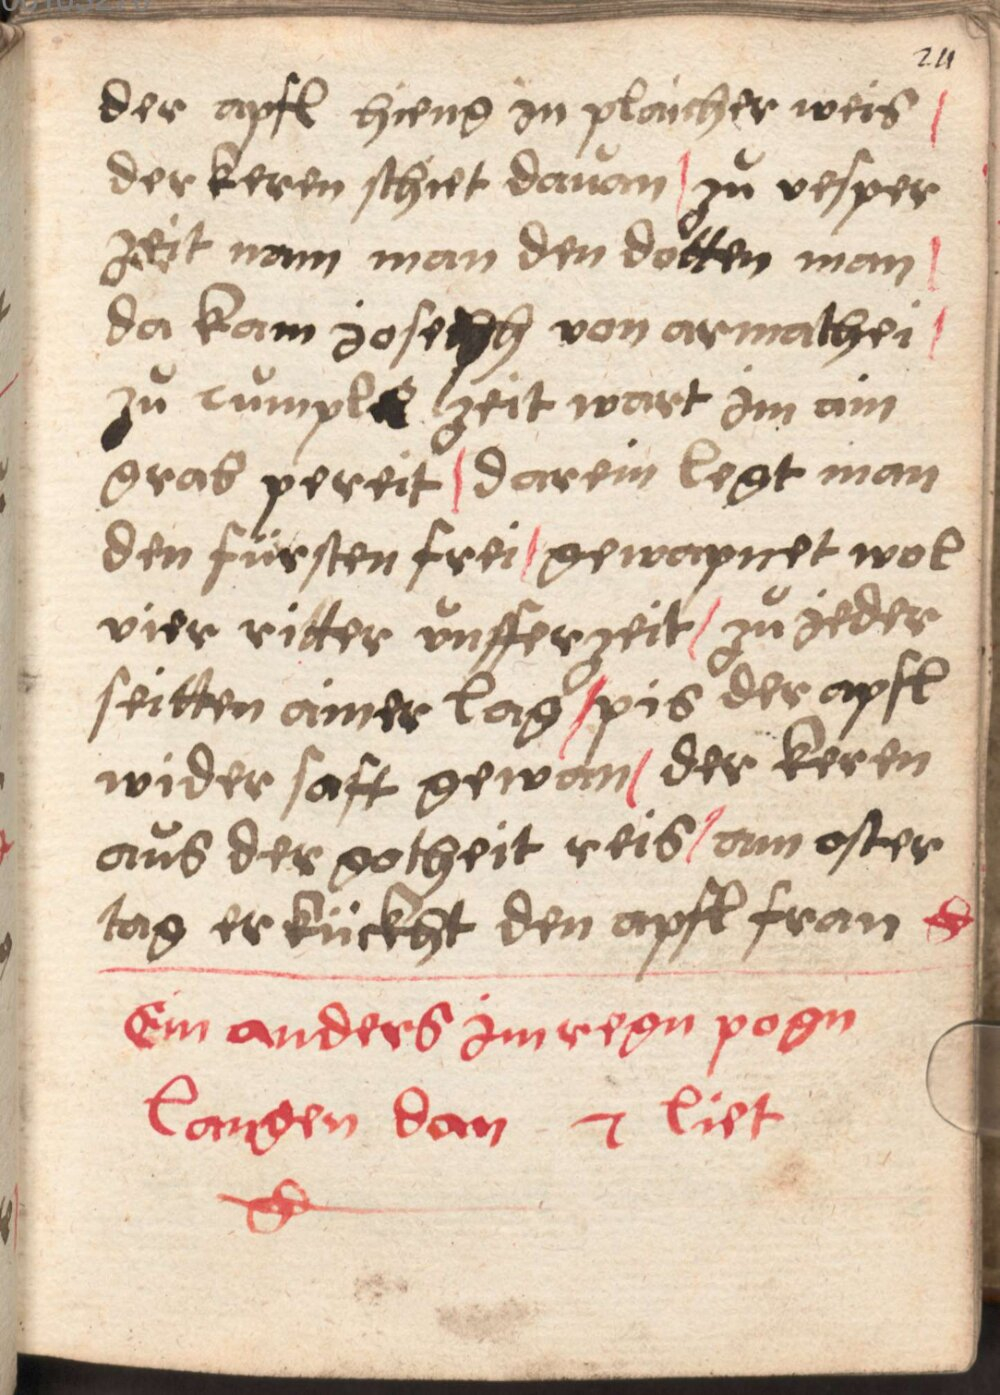 24
der apfl hieng in plaicher weis /
der keren schiet davan / zů vesper
zeit nam man den dotten man /
da kam joseph von armathei /
zů cumplet zeit wart im ain
grab pereit / darein legt man
den fürsten frei / gewapnet wol
vier ritter unsser zeit / zů jeder
seitten ainer lag / pis der apfl
wider saft gewan / der keren
aůs der gotheit reis / am oster
tag erkückht den apfl fran
Ein anders im regn pogn
langen don 7 liet